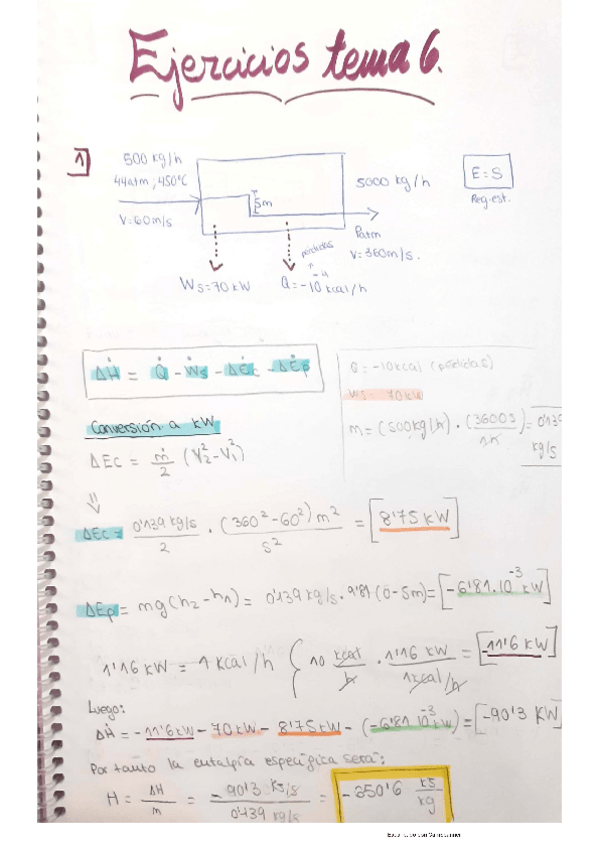 Ejercicios tema 6.
1
500 kg/h
44atm, 450°C
V=60m/s
5m
5000 kg/h
Patm
V=360m/s.
E=S
Reg.est.
pérdidas
Ws=70kW
Q=-10kcal/h
ΔḢ = Q̇ - Ẇs - ΔĖc - ΔĖp
Q=-10kcal (pérdidas)
Ws=70kW
m=(500kg/h)·(3600s/1h)=0'139 kg/s
Conversión a kW
ΔEc = ṁ/2 (V₂²-V₁²)
⇓
ΔEc = 0'139 kg/s / 2 · (360²-60²)m² / s² = [8'75 kW]
ΔEp = mg(h₂-h₁) = 0'139 kg/s·9'81(0-5m)=[-6'81·10⁻³ kW]
1'16 kW = 1 kcal/h (10 kcal/h · 1'16 kW / 1kcal/h = [-11'6 kW]
Luego:
ΔḢ = -11'6kW - 70kW - 8'75kW - (-6'81·10⁻³kW)=[-90'3 KW]
Por tanto la entalpía específica será:
H = ΔH/m = -90'3 KJ/s / 0'139 kg/s = -650'6 kJ/kg